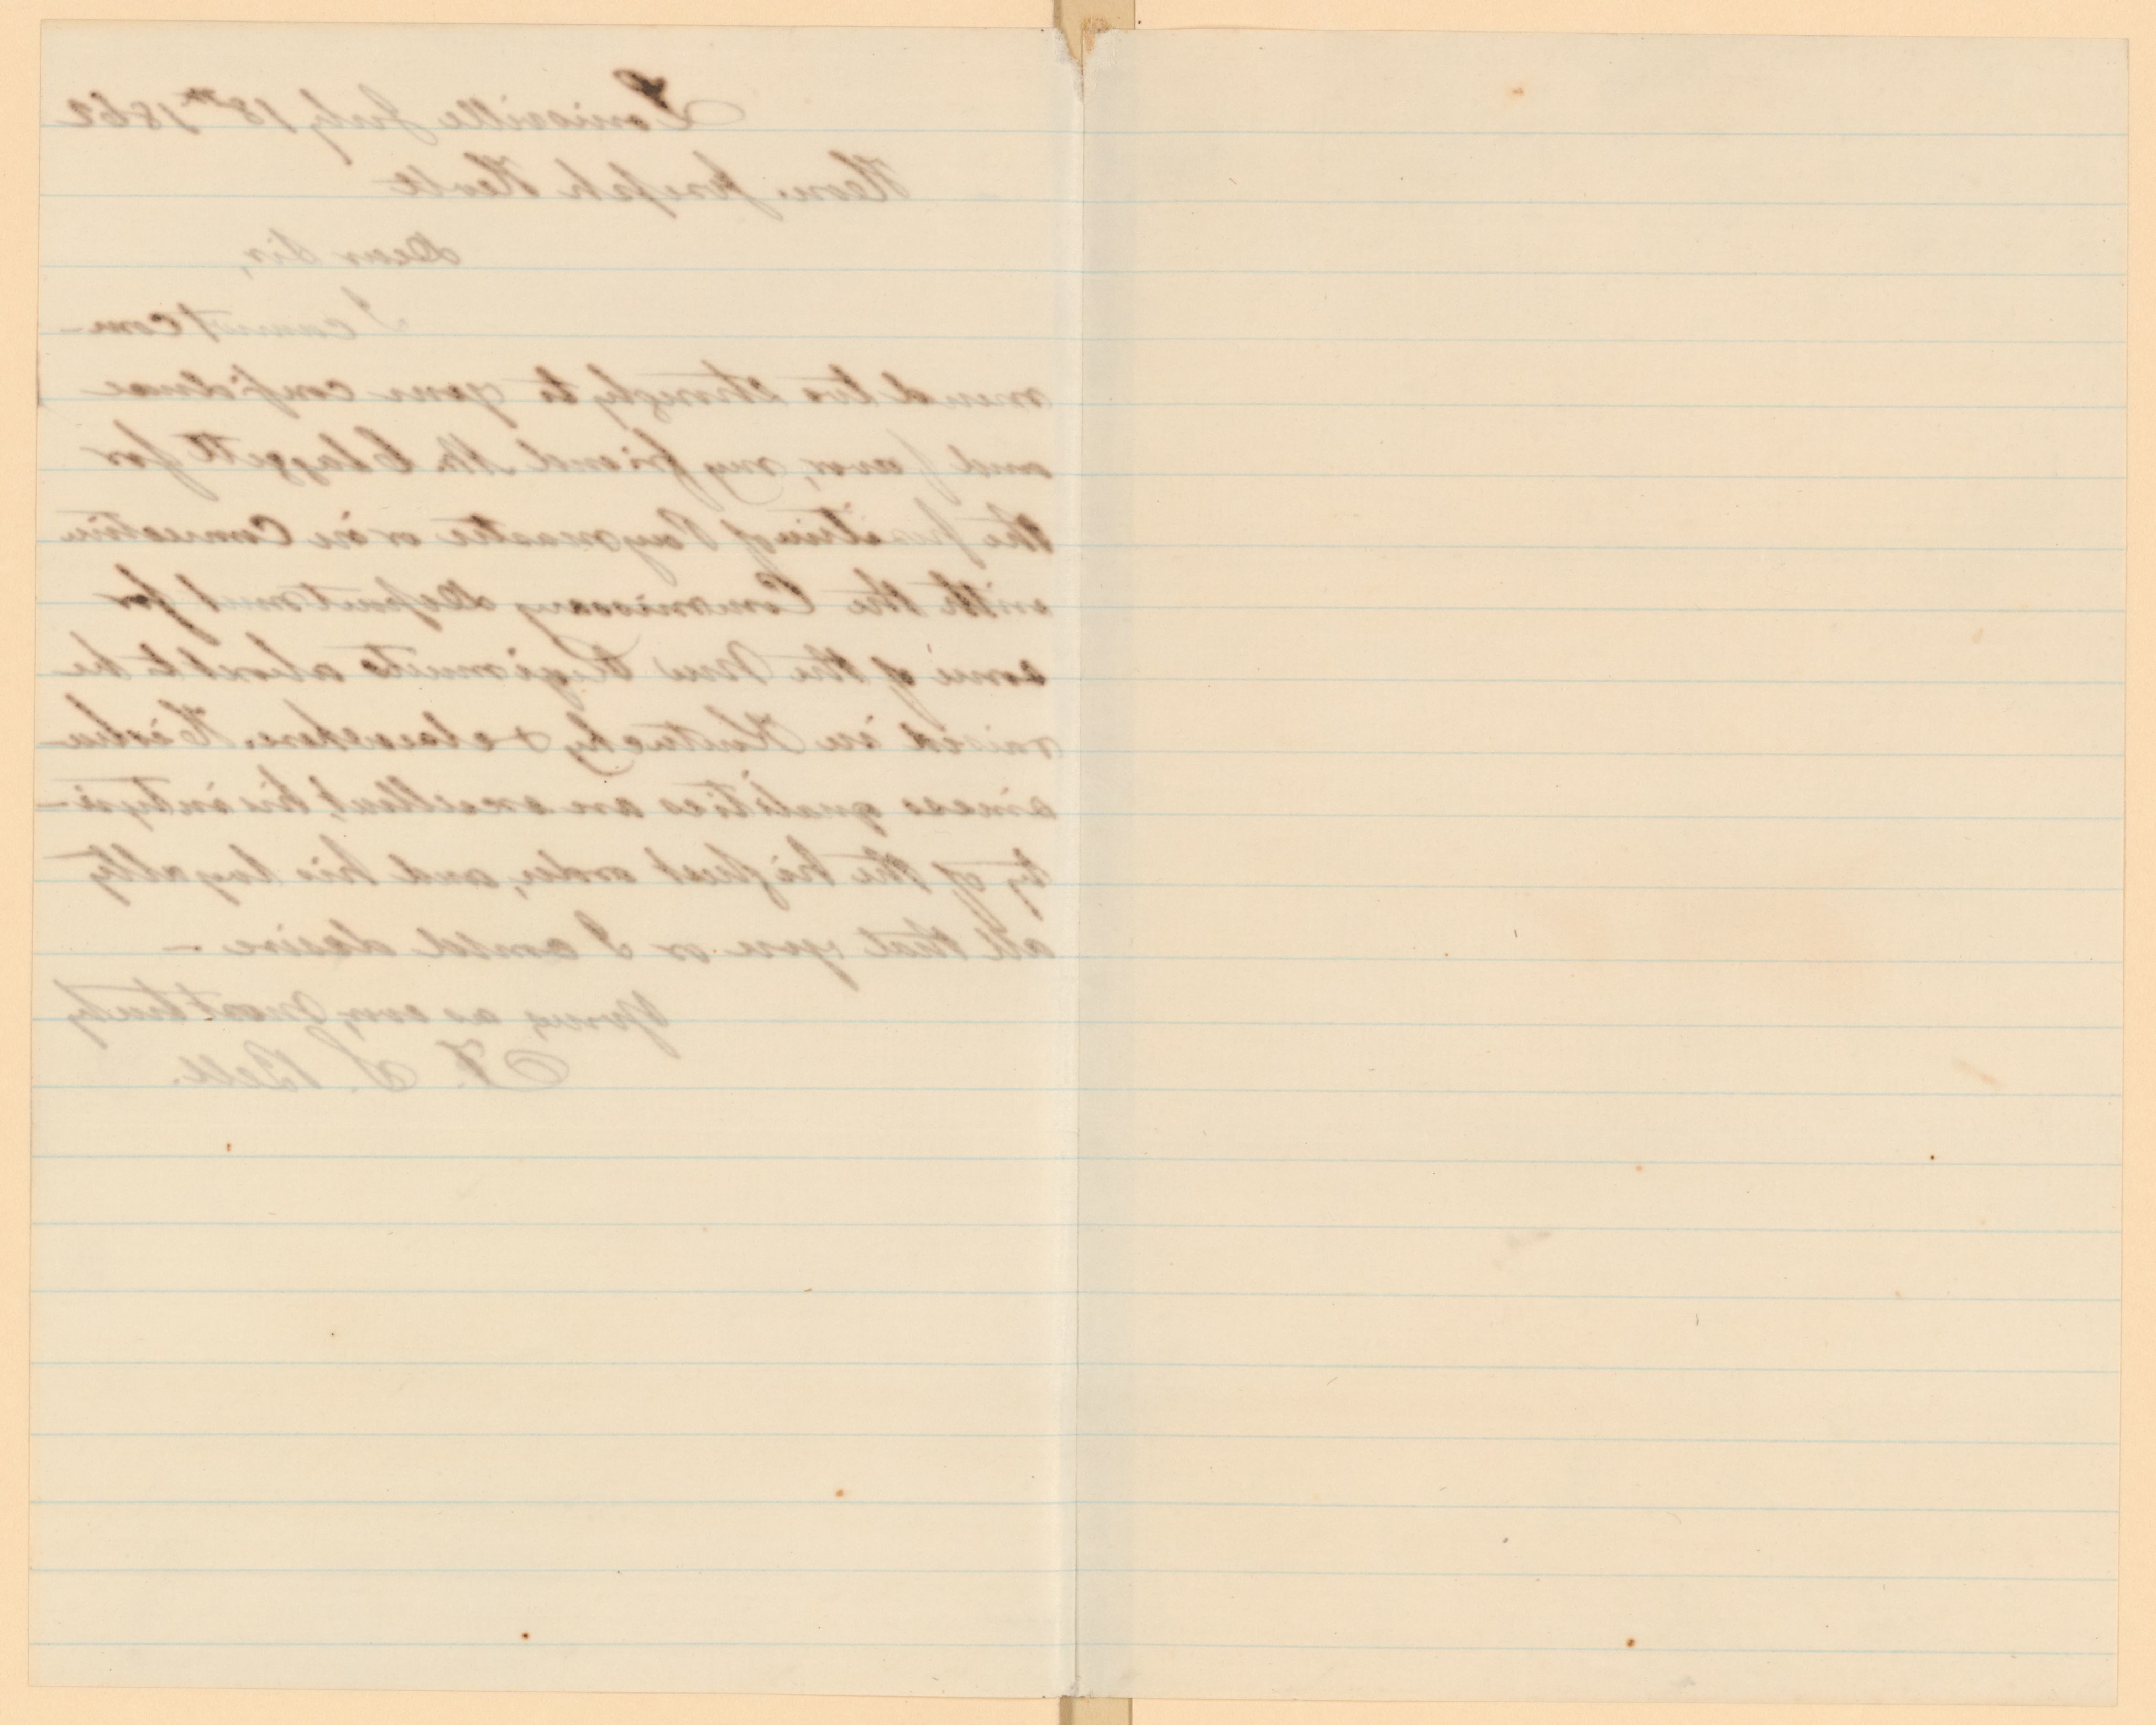 Louisville July 18th 1862
Hon. Joseph Holt
Dear Sir,
I cannot com-
mend too strongly to your confidence
and favor, my friend Mr. Claggett for
the position of Paymaster or in Connection
with the Commissary Department for
some of the New Regiments about to be
raised in Kentucky & elsewhere. His bu-
siness qualities are excellent, his integri-
ty of the highest order, and his loyalty
all that you or I could desire –
Yours, as ever, most truly
T. S. Bell.